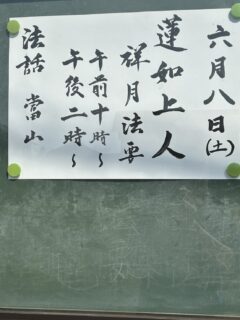 六月八日(土)
蓮如上人
祥月法要
午前十時〜
午後二時〜
法話 當山